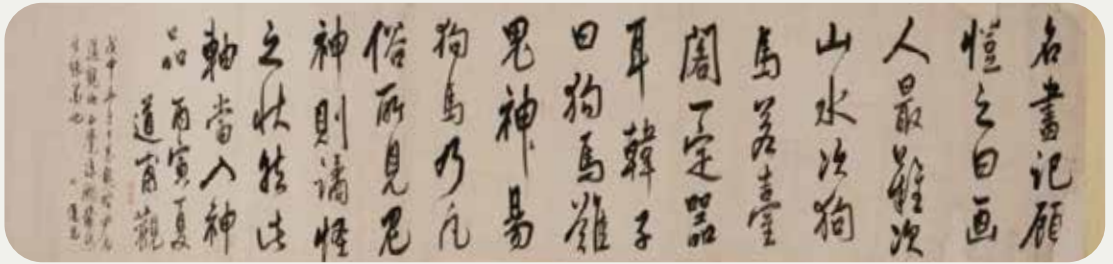 名畫记顧
愷之曰画
人最難次
山水次狗
馬若臺
閣一定器
耳韓子
曰狗馬難
鬼神易
狗馬乃凡
俗所見鬼
神則譎怪
之狀然此
軸當入神
品丙寅夏
道甯觀
戊申